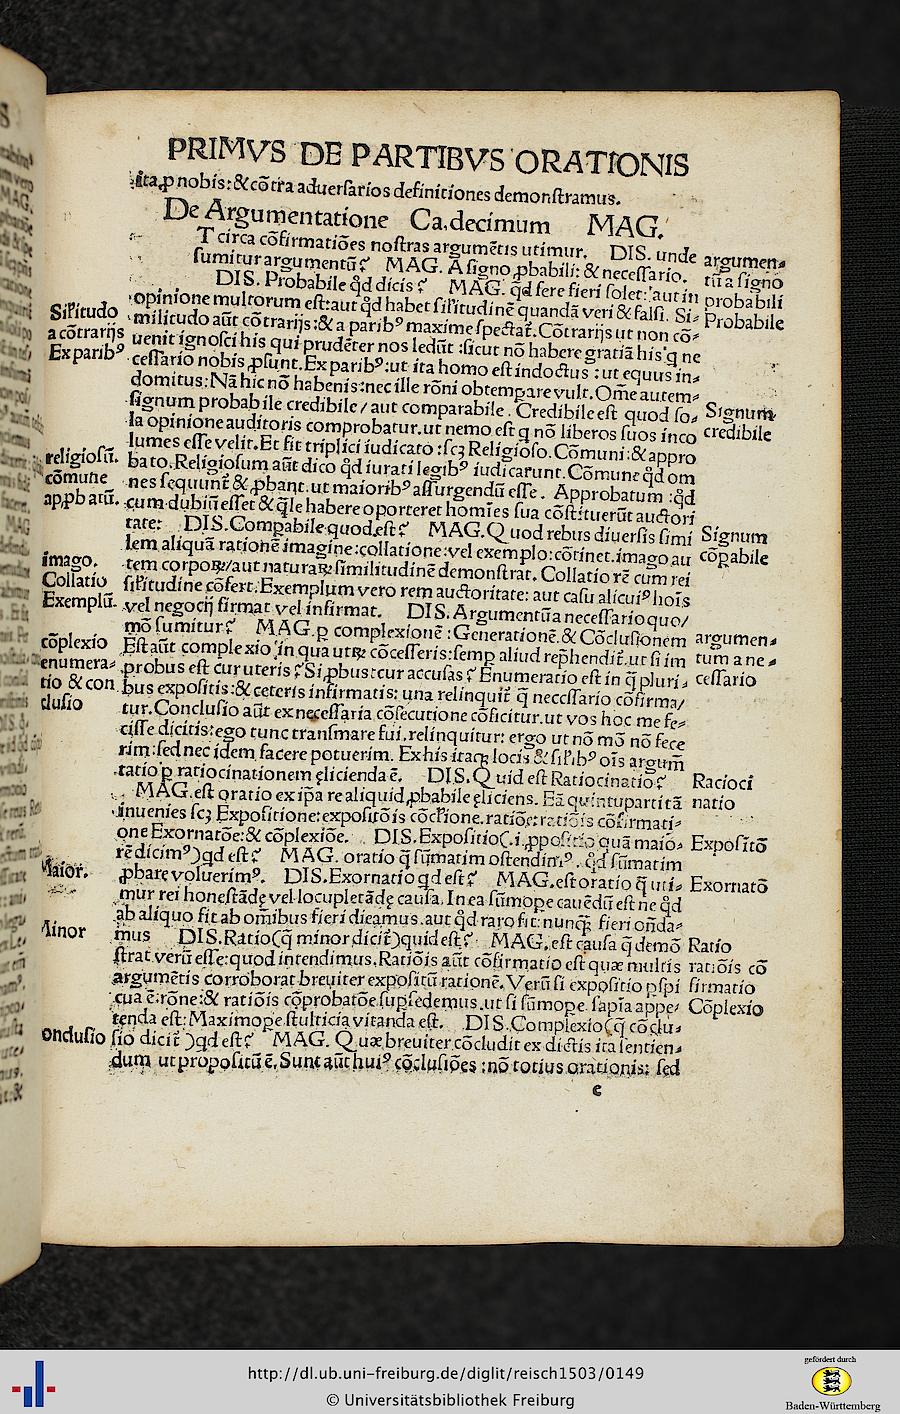 PRIMVS DE PARTIBVS ORATIONIS
ita ꝓ nobis: & cõtra aduersarios definitiones demonstramus.
De Argumentatione Ca. decimum MAG.
T circa cõfirmatiões nostras argumẽtis utimur. DIS. unde
sumitur argumentũ? MAG. A signo ꝓbabili: & necessario.
DIS. Probabile qđ dicis? MAG. qđ fere fieri solet: aut in
opinione multorum est: aut qđ habet sil'itudinẽ quandã veri & falsi. Si-
militudo aũt cõtrarijs: & a paribꝰ maxime spectat̃. Cõtrarijs ut non cõ-
uenit ignosci his qui prudẽter nos ledũt: sicut nõ habere gratiã his q ne
cessario nobis ꝓsunt. Ex paribꝰ: ut ita homo est indoctus: ut equus in-
domitus: Nã hic nõ habenis: nec ille rõni obtemꝑare vult. Om̃e autem
signum probabile credibile / aut comparabile. Credibile est quod so-
la opinione auditoris comprobatur. ut nemo est q nõ liberos suos inco
lumes esse velit. Et fit triplici iudicato: scꝫ Religioso. Cõmuni: & appro
bato. Religiosum aũt dico qđ iurati legibꝰ iudicarunt. Cõmune qđ om
nes sequunt̃ & ꝓbant. ut maioribꝰ assurgendũ esse. Approbatum: qđ
cum dubiũ esset & q̃le habere oporteret homĩes sua cõstituerũt auctori
tate: DIS. Comꝑabile quod est? MAG. Quod rebus diuersis simi
lem aliquã rationẽ imagine: collatione: vel exemplo: cõtinet. imago au
tem corpoꝝ / aut naturaꝝ similitudinẽ demonstrat. Collatio rẽ cum rei
sil'itudine cõfert. Exemplum vero rem auctoritate: aut casu alicuiꝰ hoĩs
vel negocij firmat vel infirmat. DIS. Argumentũ a necessario quo/
mõ sumitur? MAG. ꝑ complexionẽ: Generationẽ. & Cõclusionem
Est aũt complexio in qua utrũ cõcesseris: semꝑ aliud rep̃hendit̃. ut si im
probus est cur uteris? Si ꝓbus: cur accusas? Enumeratio est in q̃ pluri-
bus expositis: & ceteris infirmatis: una relinquit̃ q̃ necessario cõfirma/
tur. Conclusio aũt ex necessaria cõsecutione cõficitur. ut vos hoc me fe-
cisse dicitis: ego tunc transmare fui. relinquitur: ergo ut nõ mõ nõ fece
rim: sed nec idem facere potuerim. Ex his itaqꝫ locis & sil'ibꝰ oĩs argum̃
tatio ꝑ ratiocinationem elicienda ẽ. DIS. Quid est Ratiocinatio?
MAG. est oratio ex ip̃a re aliquid ꝓbabile eliciens. Eã quintupartitã
inuenies scꝫ Expositione: expositõis cõfir̃ione. ratiõe: ratiõis cõfirmati-
one Exornatõe: & cõplexiõe. DIS. Expositio (.i. ꝓpositio quã maio-
rẽ dicimꝰ) qđ est? MAG. oratio q̃ sũmatim ostendimꝰ. qđ sũmatim
ꝓbare voluerimꝰ. DIS. Exornatio qđ est? MAG. est oratio q̃ uti-
mur rei honestãdę vel locupletãdę causa. In ea sũmope cauẽdũ est ne qđ
ab aliquo fit ab om̃ibus fieri dicamus. aut qđ raro fit: nunq̃ fieri oñda-
mus DIS. Ratio (q̃ minor dicit̃) quid est? MAG. est causa q̃ demõ
strat verũ esse: quod intendimus. Ratiõis aũt cõfirmatio est quæ multis
argumẽtis corroborat breuiter expositũ rationẽ. Verũ si expositio ꝑspi
cua ẽ: rõne: & ratiõis cõprobatõe suꝑsedemus. ut si sũmope sapĩa appe-
tenda est: Maximope stulticia vitanda est. DIS. Complexio (q̃ cõclu-
sio dicit̃) qđ est? MAG. Quæ breuiter cõcludit ex dictis ita sentien-
dum ut propositũ ẽ. Sunt aũt huiꝰ cõclusiões: nõ totius orationis: sed
e
Sil'itudo
a cõtrarijs
Ex paribꝰ
religiosũ.
cõmune
apꝓbatũ.
imago.
Collatio
Exemplũ.
cõplexio
enumera-
tio & con
clusio
Maior.
Minor
onclusio
argumen-
tũ a signo
probabili
Probabile
Signum
credibile
Signum
cõpabile
argumen-
tum a ne-
cessario
Racioci
natio
Expositõ
Exornatõ
Ratio
ratiõis cõ
firmatio
Cõplexio
http://dl.ub.uni-freiburg.de/diglit/reisch1503/0149
© Universitätsbibliothek Freiburg
gefördert durch
Baden-Württemberg